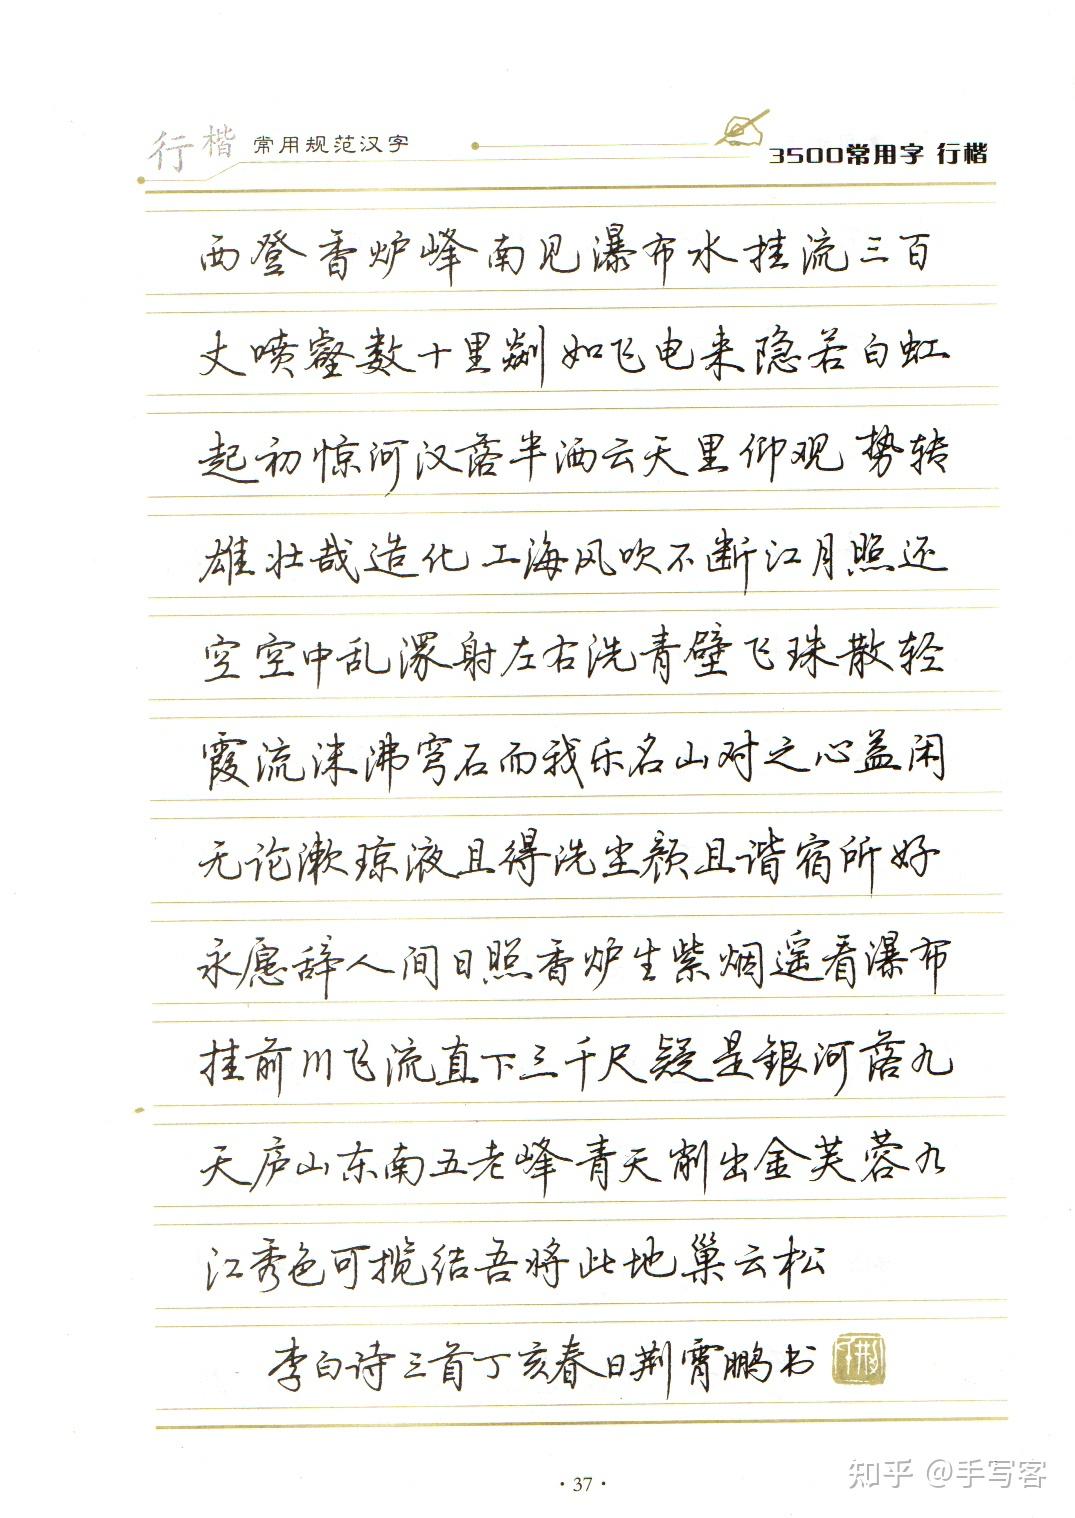 行楷 常用规范汉字
3500常用字 行楷
西登香炉峰南见瀑布水挂流三百
丈喷壑数十里欻如飞电来隐若白虹
起初惊河汉落半洒云天里仰观势转
雄壮哉造化工海风吹不断江月照还
空空中乱潈射左右洗青壁飞珠散轻
霞流沫沸穹石而我乐名山对之心益闲
无论漱琼液且得洗尘颜且谐宿所好
永愿辞人间日照香炉生紫烟遥看瀑布
挂前川飞流直下三千尺疑是银河落九
天庐山东南五老峰青天削出金芙蓉九
江秀色可揽结吾将此地巢云松
李白诗三首丁亥春日荆霄鹏书
·37·
知乎 @手写客